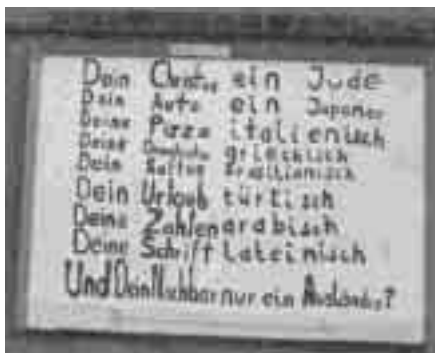 Dein Christus ein Jude
Dein Auto ein Japaner
Deine Pizza italienisch
Deine Demokratie griechisch
Dein Kaffee brasilianisch
Dein Urlaub türkisch
Deine Zahlen arabisch
Deine Schrift Lateinisch
Und Dein Nachbar nur ein Ausländer?